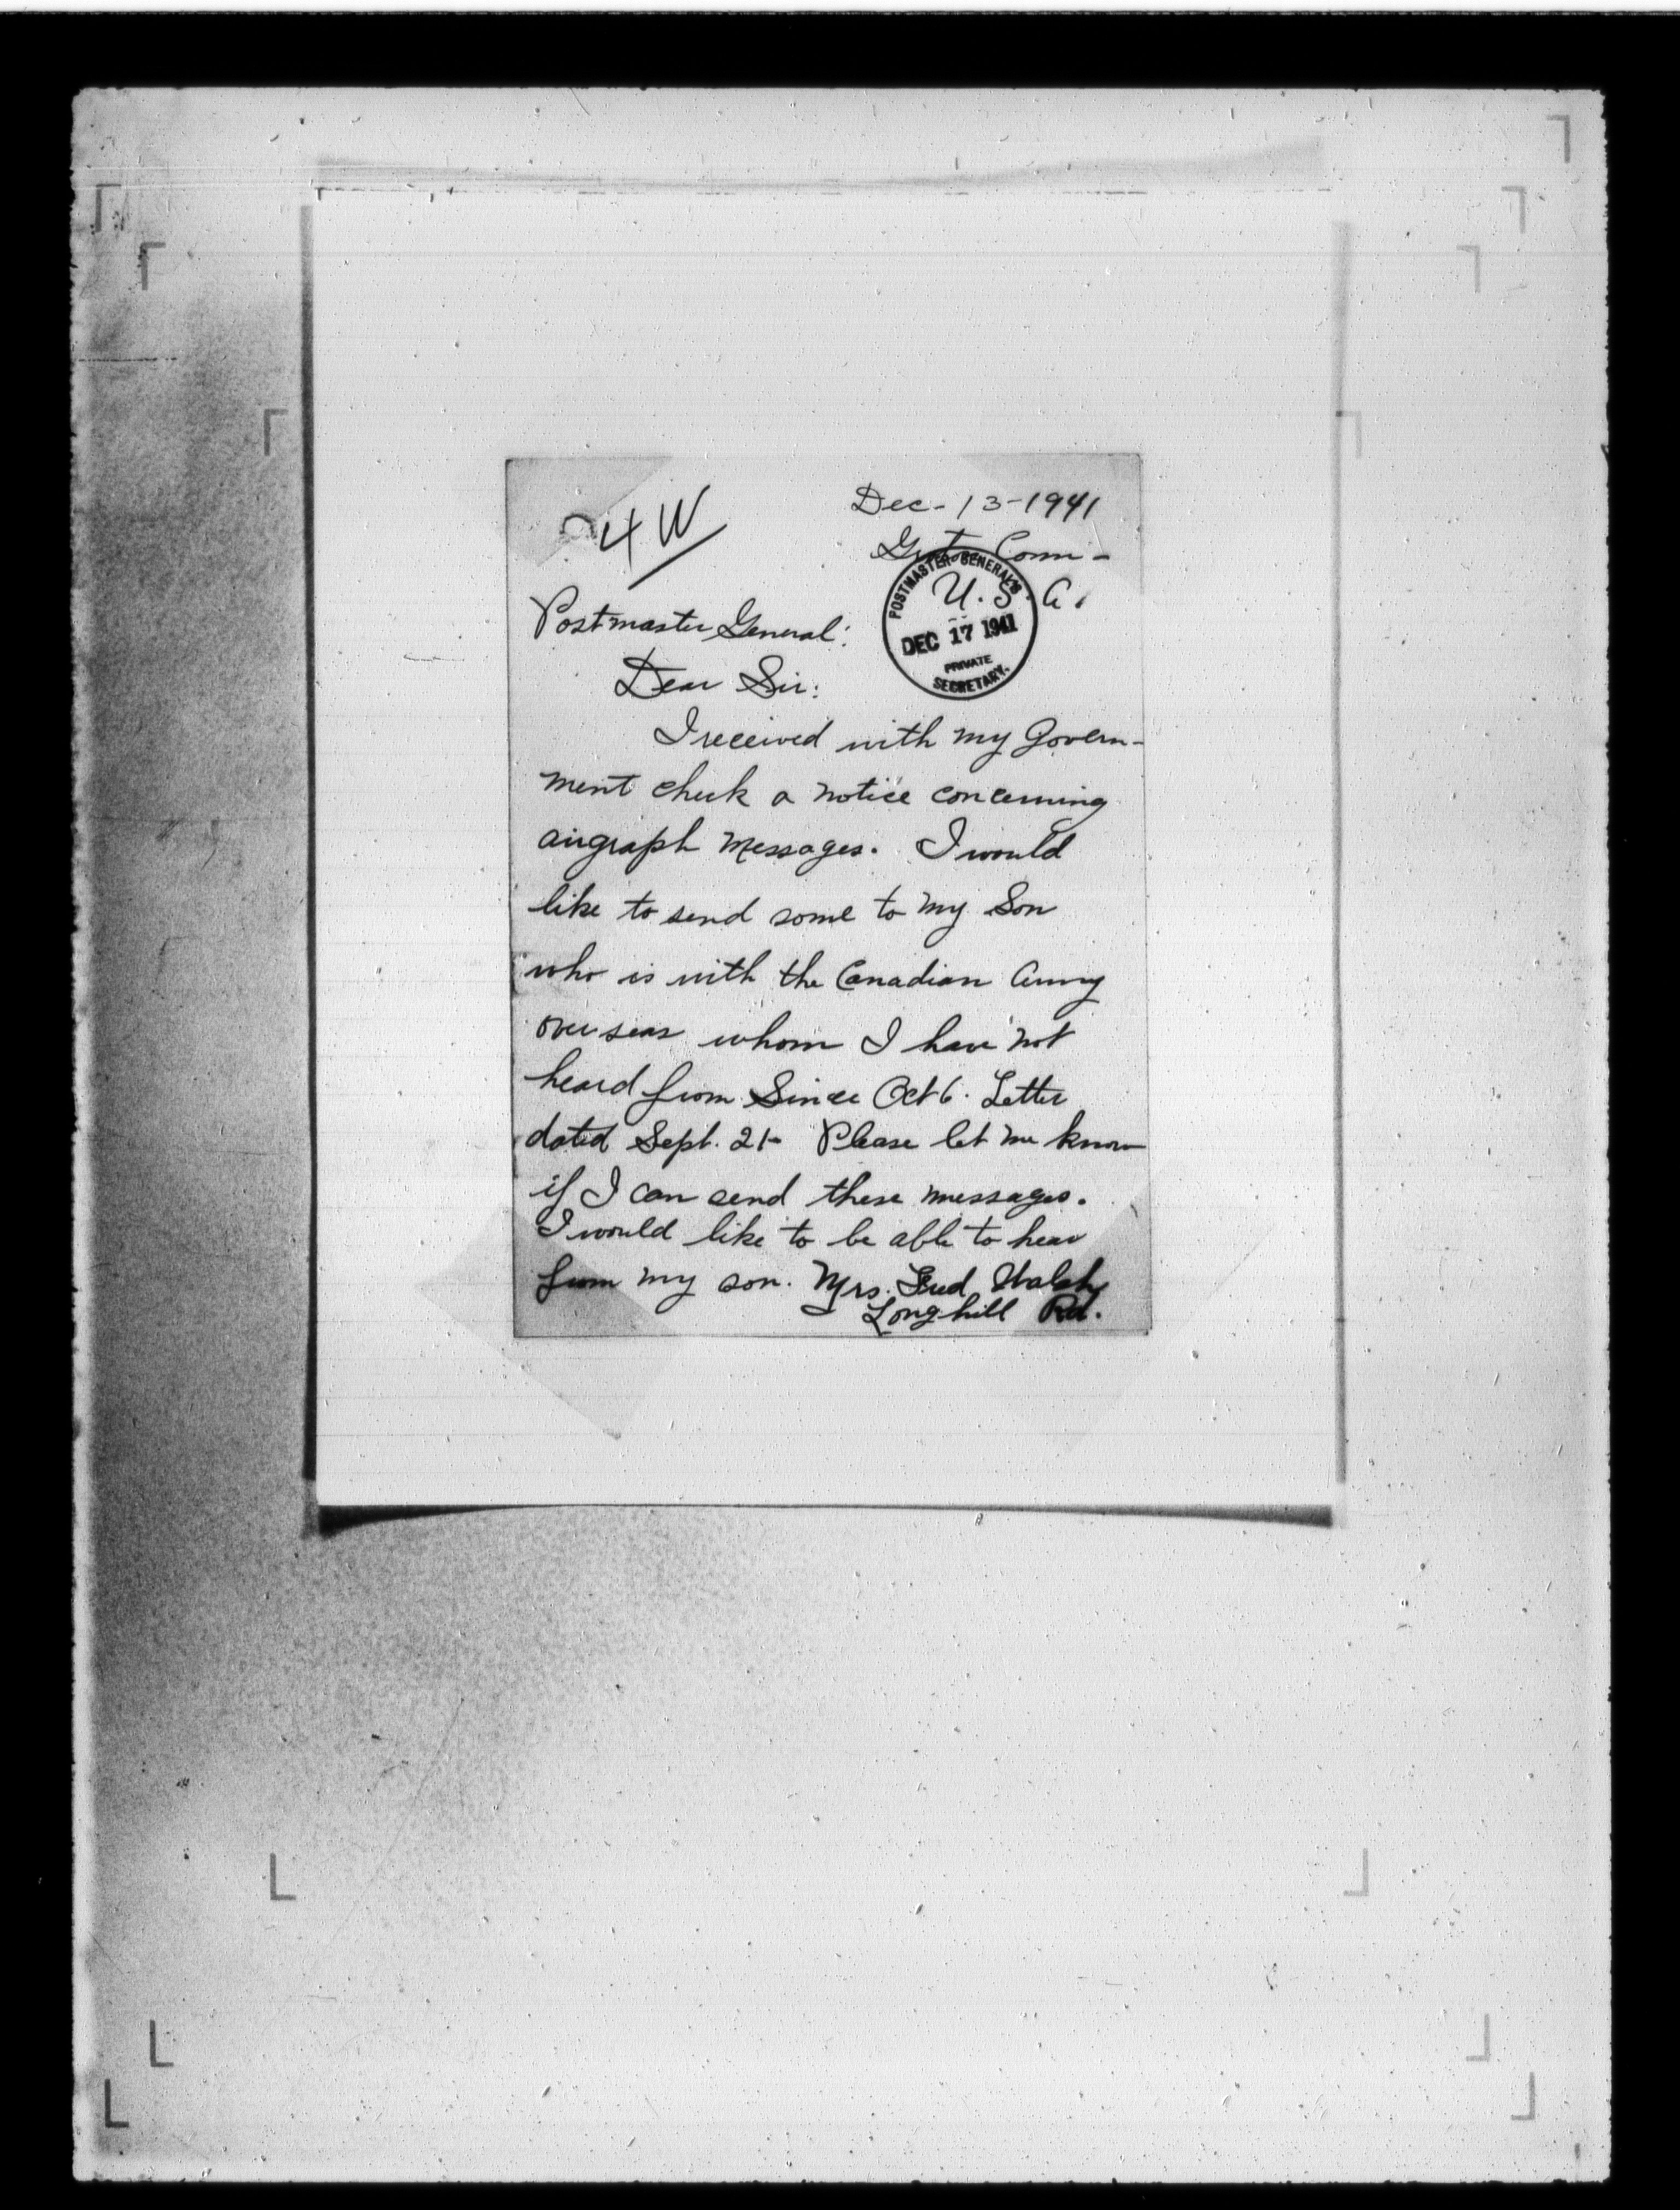 Dec-13-1941
4 W
Conn-
U.S.A.
POSTMASTER GENERAL'S
DEC 17 1941
PRIVATE
SECRETARY.
Postmaster General:
Dear Sir:
I received with my Govern-
ment check a notice concerning
airgraph messages. I would
like to send some to my Son
who is with the Canadian Army
over seas whom I have not
heard from Since Oct 6. Letter
dated Sept. 21- Please let me know
if I can send these messages.
I would like to be able to hear
from my son. Mrs. Fred Walsh
Longhill Rd.